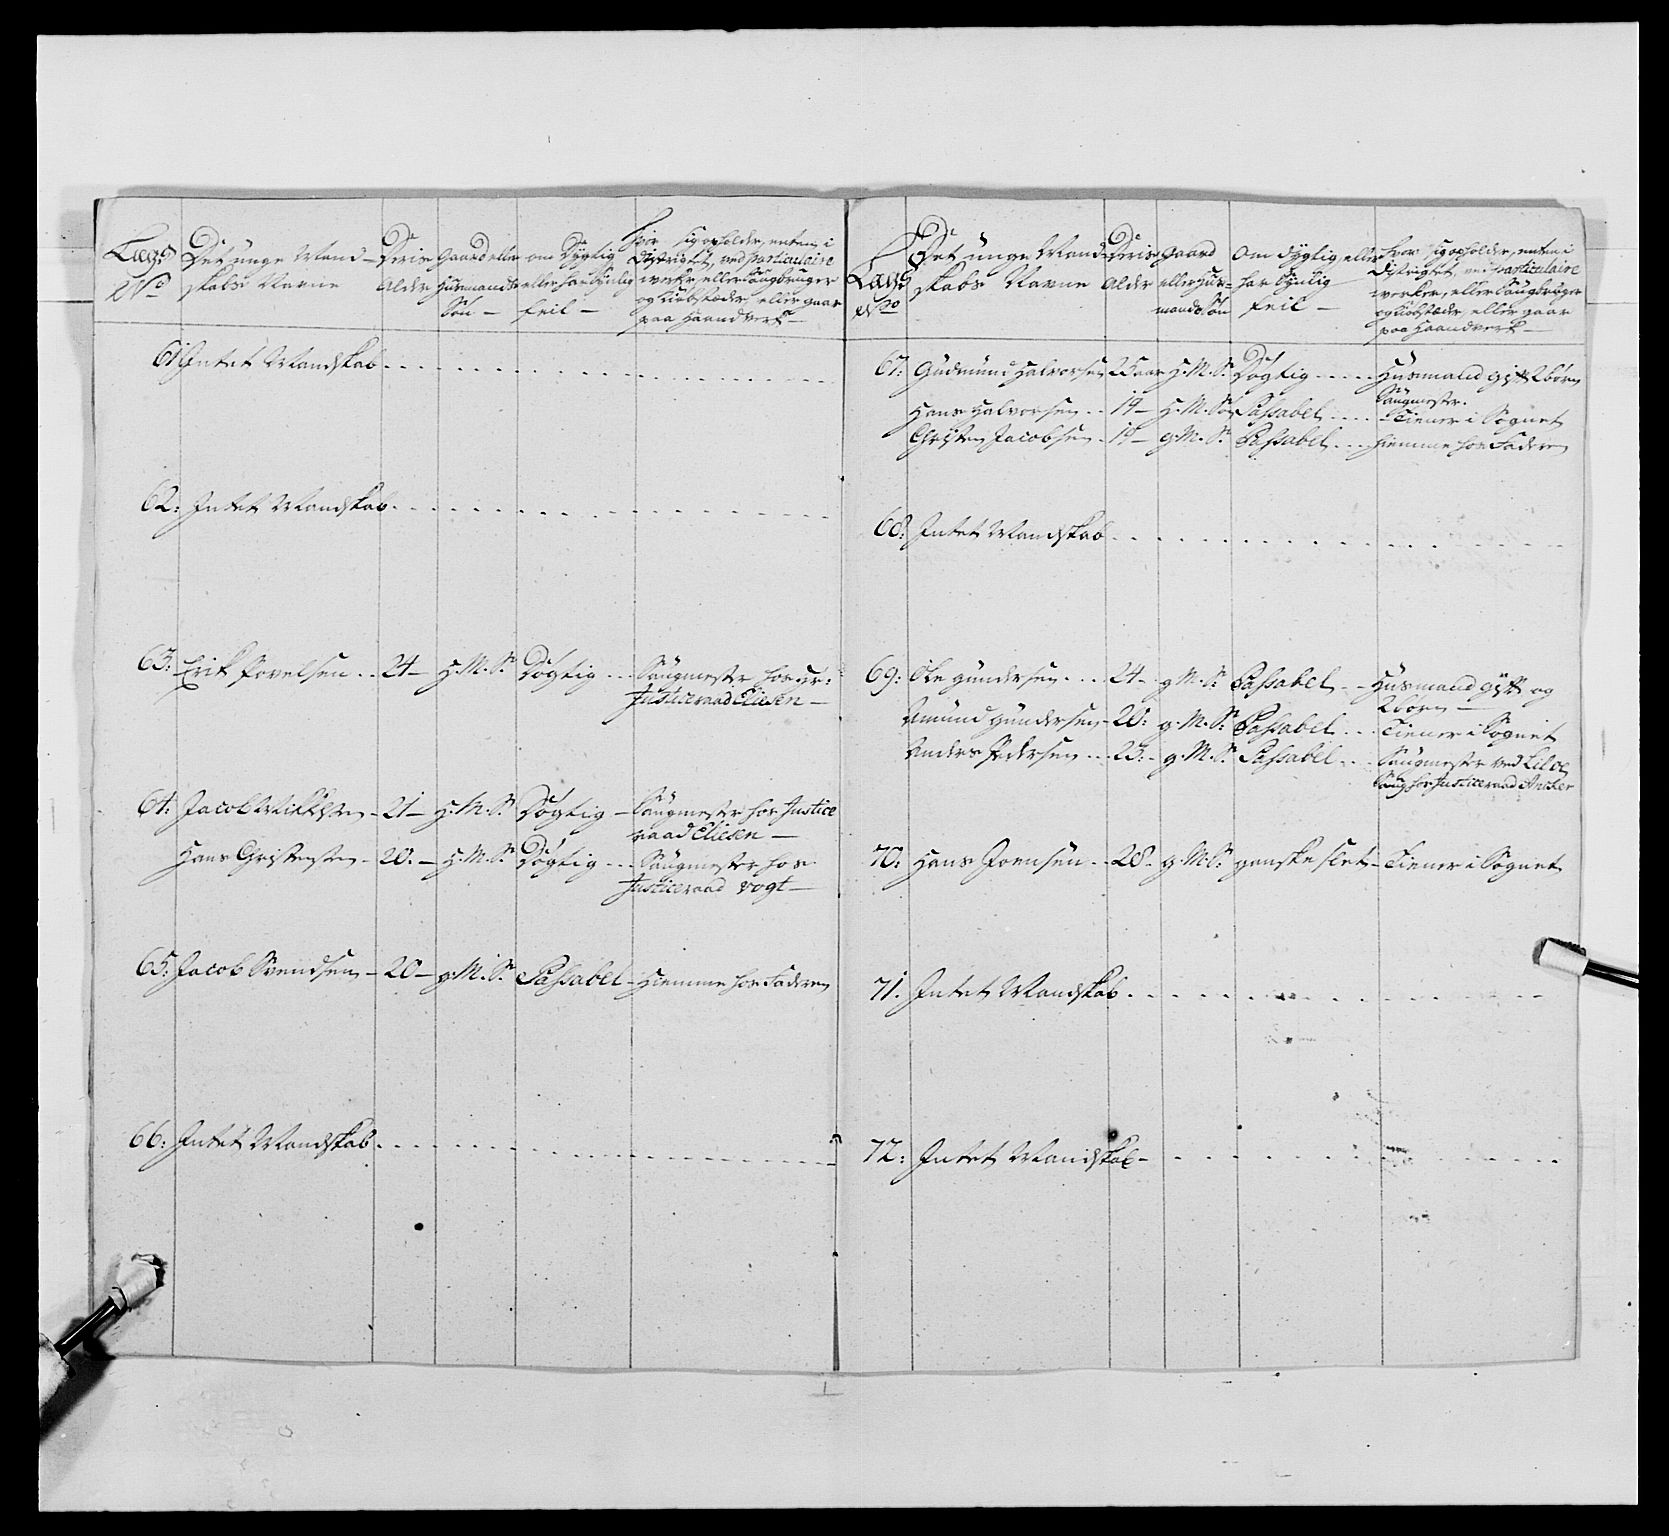 Lægs
No
Det unge Mand-
skabs Navne
Deris
Alder
Gaard eller
Husmands
Søn -
om Dygtig
eller har Synlig
feil -
hvor sig opholder, enten i
Districtet, ved particulaire
werker eller Saugbruger
og Kiøbstæder eller gaar
paa Haandverk -
61: Intet Mandskab
62: Intet Mandskab
63: Erik Povelsen 24 - H. M. S. Døgtig Saugmester hos Hr:
Justiceraad Eliesen -
64: Jacob Mikkelsen - 21 - H. M. S. Døgtig - Saugmester hos Justice
raad Eliesen -
Hans Christensen - 20. - H. M. S. Døgtig Saugmester hos
Justiceraad Vogt -
65: Jacob Svendsen - 20 - g. M. S. Passabel - Hiemme hos Faderen
66: Intet Mandskab
Lægs
No
Det unge Mand-
skabs Navne
Deris
Alder
Gaard
eller Hus-
mands Søn
Om dygtig eller
har Synlig
feil -
hvor sig opholder, enten i
Districtet, ved particulaire
werker, eller Saugbruger
og Kiøbstæder, eller gaar
paa Haandverk -
67: Gudmund Halvorsen 25 aar H. M. S. Døgtig Husmand gift 2 børn
Saugmester.
Hans Halvorsen 19 - H. M. Søn Passabel Tiener i Sognet
Christen Jacobsen 18 - g. M. S. Passabel hiemme hos Faderen
68: Intet Mandskab
69: Ole Gundersen 24 - g. M. S. Passabel - Husmand gift og
2 børn -
Amund Gundersen - 20: g. M. S. Passabel Tiener i Sognet
Anders Pedersen 23 - g. M. S. Passabel Saugmester ved
Saug hos Justiceraad Ancher
70: Hans Joensen 28 - g. M. S. ganske slet - Tiener i Sognet
71. Intet Mandskab
72: Intet Mandskab -